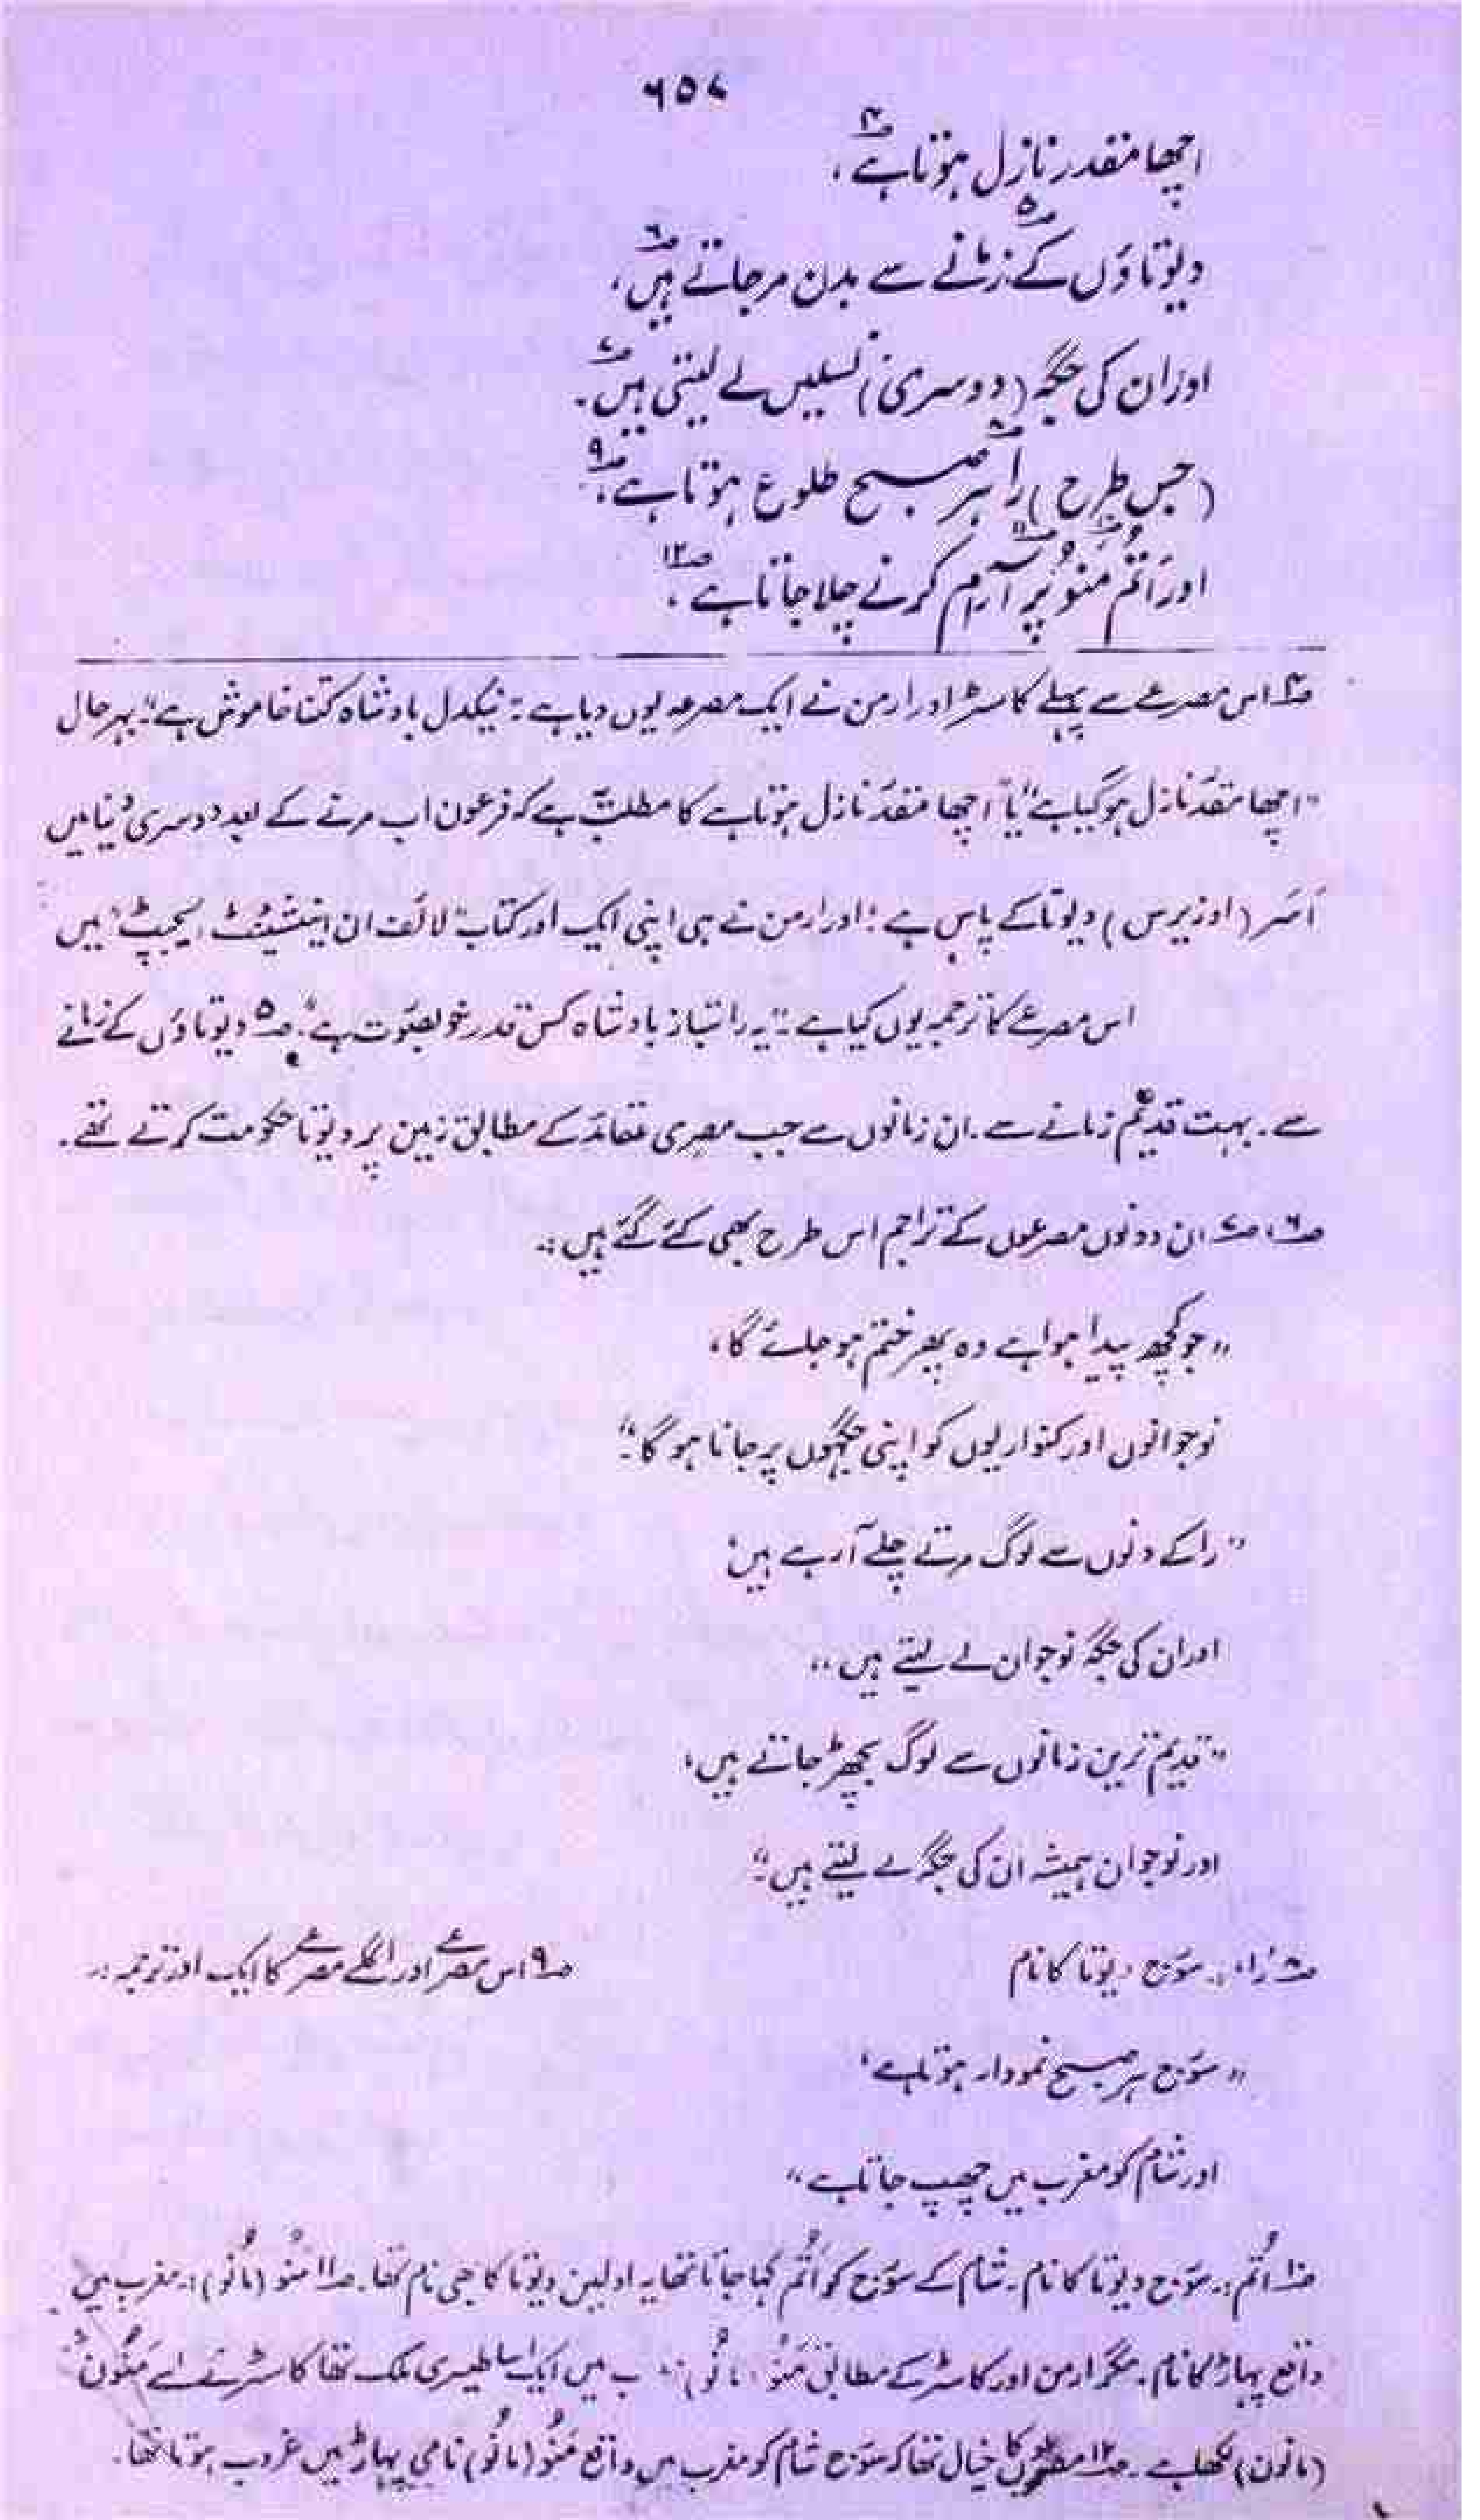 ۶۵۷
اچھا مقدر نازل ہوتا ہے ؎۴،
دیوتاؤں کے زمانے ؎۵ سے بدن مر جاتے ہیں ؎۶،
اور ان کی جگہ (دوسری) نسلیں لے لیتی ہیں ؎۷۔
(جس طرح) را ؎۸ ہر صبح طلوع ہوتا ہے ؎۹،
اور اَتُم ؎۱۰ مَنُو ؎۱۱ پر آرام کرنے چلا جاتا ہے ؎۱۲۔
؎۴ اس مصرعے سے پہلے کاسٹر اور ارمن نے ایک مصرعہ یوں دیا ہے :۔ "نیکدل بادشاہ کتنا خاموش ہے"۔ بہرحال
"اچھا مقدر نازل ہو گیا ہے" یا "اچھا مقدر نازل ہوتا ہے" کا مطلب ہے کہ فرعون اب مرنے کے بعد دوسری دنیا میں
اَسَر (اوزیرس) دیوتا کے پاس ہے؛ اور ارمن نے ہی اپنی ایک اور کتاب "لائف ان اینشینٹ ایجپٹ" میں
اس مصرعے کا ترجمہ یوں کیا ہے :۔ "یہ راستباز بادشاہ کس قدر خوبصورت ہے"۔ ؎۵ دیوتاؤں کے زمانے
سے ۔ بہت قدیم زمانے سے ۔ ان زمانوں سے جب مصری عقائد کے مطابق زمین پر دیوتا حکومت کرتے تھے ۔
؎۶، ؎۷ ان دونوں مصرعوں کے تراجم اس طرح بھی کئے گئے ہیں :۔
"جو کچھ پیدا ہوا ہے وہ پھر ختم ہو جائے گا،
نوجوانوں اور کنواریوں کو اپنی جگہوں پر جانا ہو گا"۔
"را کے دنوں سے لوگ مرتے چلے آ رہے ہیں،
اور ان کی جگہ نوجوان لے لیتے ہیں"
"قدیم ترین زمانوں سے لوگ بچھڑ جاتے ہیں،
اور نوجوان ہمیشہ ان کی جگہ لے لیتے ہیں"۔
؎۸ را :۔ سورج دیوتا کا نام ؎۹ اس مصرعے اور اگلے مصرعے کا ایک اور ترجمہ :۔
"سورج ہر صبح نمودار ہوتا ہے،
اور شام کو مغرب میں چھپ جاتا ہے"
؎۱۰ اَتُم :۔ سورج دیوتا کا نام ۔ شام کے سورج کو اَتُم کہا جاتا تھا یہ اولین دیوتا کا بھی نام تھا۔ ؎۱۱ مَنُو (مانُو) :۔ مغرب میں
واقع پہاڑ کا نام ۔ مگر ارمن اور کاسٹر کے مطابق مَنُو (مانُو) میں ایک اساطیری ملک تھا کاسٹر نے اسے مَنُون
(مانون) لکھا ہے ۔ ؎۱۲ مصریوں کا خیال تھا کہ سورج شام کو مغرب میں واقع مَنُو (مانُو) نامی پہاڑ میں غروب ہوتا تھا۔